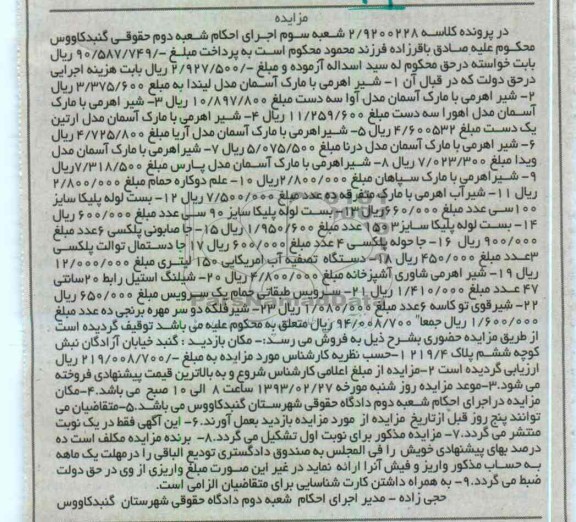 مزایده
در پرونده کلاسه ۲/۹۲۰۰۲۲۸ شعبه سوم اجرای احکام شعبه دوم حقوقی گنبدکاووس
محکوم علیه صادق باقرزاده فرزند محمود محکوم است به پرداخت مبلغ -/۹۰/۵۸۷/۷۴۹ ریال
بابت خواسته درحق محکوم له سید اسداله آزموده و مبلغ -/۲/۹۲۷/۵۰۰ ریال بابت هزینه اجرایی
درحق دولت که در قبال آن ۱- شیر اهرمی با مارک آسمان مدل لیندا به مبلغ ۳/۳۷۵/۶۰۰ ریال
۲- شیر اهرمی با مارک آسمان مدل آوا سه دست مبلغ ۱۰/۸۹۷/۸۰۰ ریال ۳- شیر اهرمی با مارک
آسمان مدل اهورا سه دست مبلغ ۱۱/۲۵۹/۶۰۰ ریال ۴- شیر اهرمی با مارک آسمان مدل ارتین
یک دست مبلغ ۴/۶۰۰۵۳۲ ریال ۵- شیراهرمی با مارک آسمان مدل آریا مبلغ ۴/۷۲۵/۸۰۰ ریال
۶- شیر اهرمی با مارک آسمان مدل درنا مبلغ ۵/۰۷۵/۵۰۰ ریال ۷- شیراهرمی با مارک آسمان مدل
ویدا مبلغ ۷/۰۲۳/۳۰۰ ریال ۸- شیراهرمی با مارک آسمان مدل پارس مبلغ ۷/۳۱۸/۵۰۰ریال
۹- شیر اهرمی با مارک سپاهان مبلغ ۲/۸۰۰/۰۰۰ریال ۱۰- علم دوکاره حمام مبلغ ۲/۸۰۰/۰۰۰
ریال ۱۱- شیرآب اهرمی با مارک متفرقه ده عدد مبلغ ۷/۵۰۰/۰۰۰ ریال ۱۲- بست لوله پلیکا سایز
۱۰۰سی عدد مبلغ ۶۶۰/۰۰۰ریال ۱۳- بست لوله پلیکا سایز ۹۰ سی عدد مبلغ ۶۰۰/۰۰۰ ریال
۱۴- بست لوله پلیکا سایز عدد مبلغ ۱/۹۵۰/۶۰۰ ریال ۱۵- جا صابونی پلکسی ۶عدد مبلغ
۹۰۰/۰۰۰ ریال ۱۶- جا حوله پلکسی ۴ عدد مبلغ ۶۰۰/۰۰۰ ریال ۱۷ جا دستمال توالت پلکسی
۳عدد مبلغ ۴۵۰/۰۰۰ ریال ۱۸- دستگاه تصفیه آب امریکایی ۱۵۰ لیتری مبلغ ۱۲/۰۰۰/۰۰۰
ریال ۱۹- شیر اهرمی شاوری آشپزخانه مبلغ ۴/۸۰۰/۰۰۰ ریال ۲۰- شیلنگ استیل رابط ۲۰سانتی
۴۷ عدد مبلغ ۱/۴۱۰/۰۰۰ ریال ۲۱- سرویس طبقاتی حمام یک سرویس مبلغ ۶۵۰/۰۰۰ ریال
۲۲- شیرقوی تو کاسه ۶عدد مبلغ ۱/۰۸۰/۰۰۰ ریال ۲۳- شیرفلکه دو سر مهره برنجی ده عدد مبلغ
۱/۶۰۰/۰۰۰ ریال جمعا" ۹۴/۰۰۸/۷۰۰ ریال متعلق به محکوم علیه می باشد توقیف گردیده است
از طریق مزایده حضوری بشرح ذیل به فروش می رسد:- مکان بازدید : گنبد خیابان آزادگان نبش
کوچه ششم پلاک ۲۱۹/۴ ۱-حسب نظریه کارشناس مورد مزایده به مبلغ -/۲۱۹/۰۰۸/۷۰۰ ریال
ارزیابی گردیده است ۲-مزایده از مبلغ اعلامی کارشناس شروع و به بالاترین قیمت پیشنهادی فروخته
می شود.۳-موعد مزایده روز شنبه مورخه ۱۳۹۳/۰۲/۲۷ ساعت ۸ الی ۱۰ صبح می باشد.۴-مکان
مزایده در اجرای احکام شعبه دوم دادگاه حقوقی شهرستان گنبدکاووس می باشد.۵-متقاضیان می
توانند پنج روز قبل ازتاریخ مزایده از مورد مزایده بازدید بعمل آورند.۶- این آگهی فقط در یک نوبت
منتشر می گردد.۷- مزایده مذکور برای نوبت اول تشکیل می گردد.۸- برنده مزایده مکلف است ده
درصد بهای پیشنهادی خویش را فی المجلس به صندوق دادگستری تودیع الباقی را درمهلت یک ماهه
به حساب مذکور واریز و فیش آنرا ارائه نماید در غیر این صورت مبلغ واریزی از وی در حق دولت
ضبط می گردد.۹- به همراه داشتن کارت شناسایی برای متقاضیان الزامی است.
حجی زاده - مدیر اجرای احکام شعبه دوم دادگاه حقوقی شهرستان گنبدکاووس